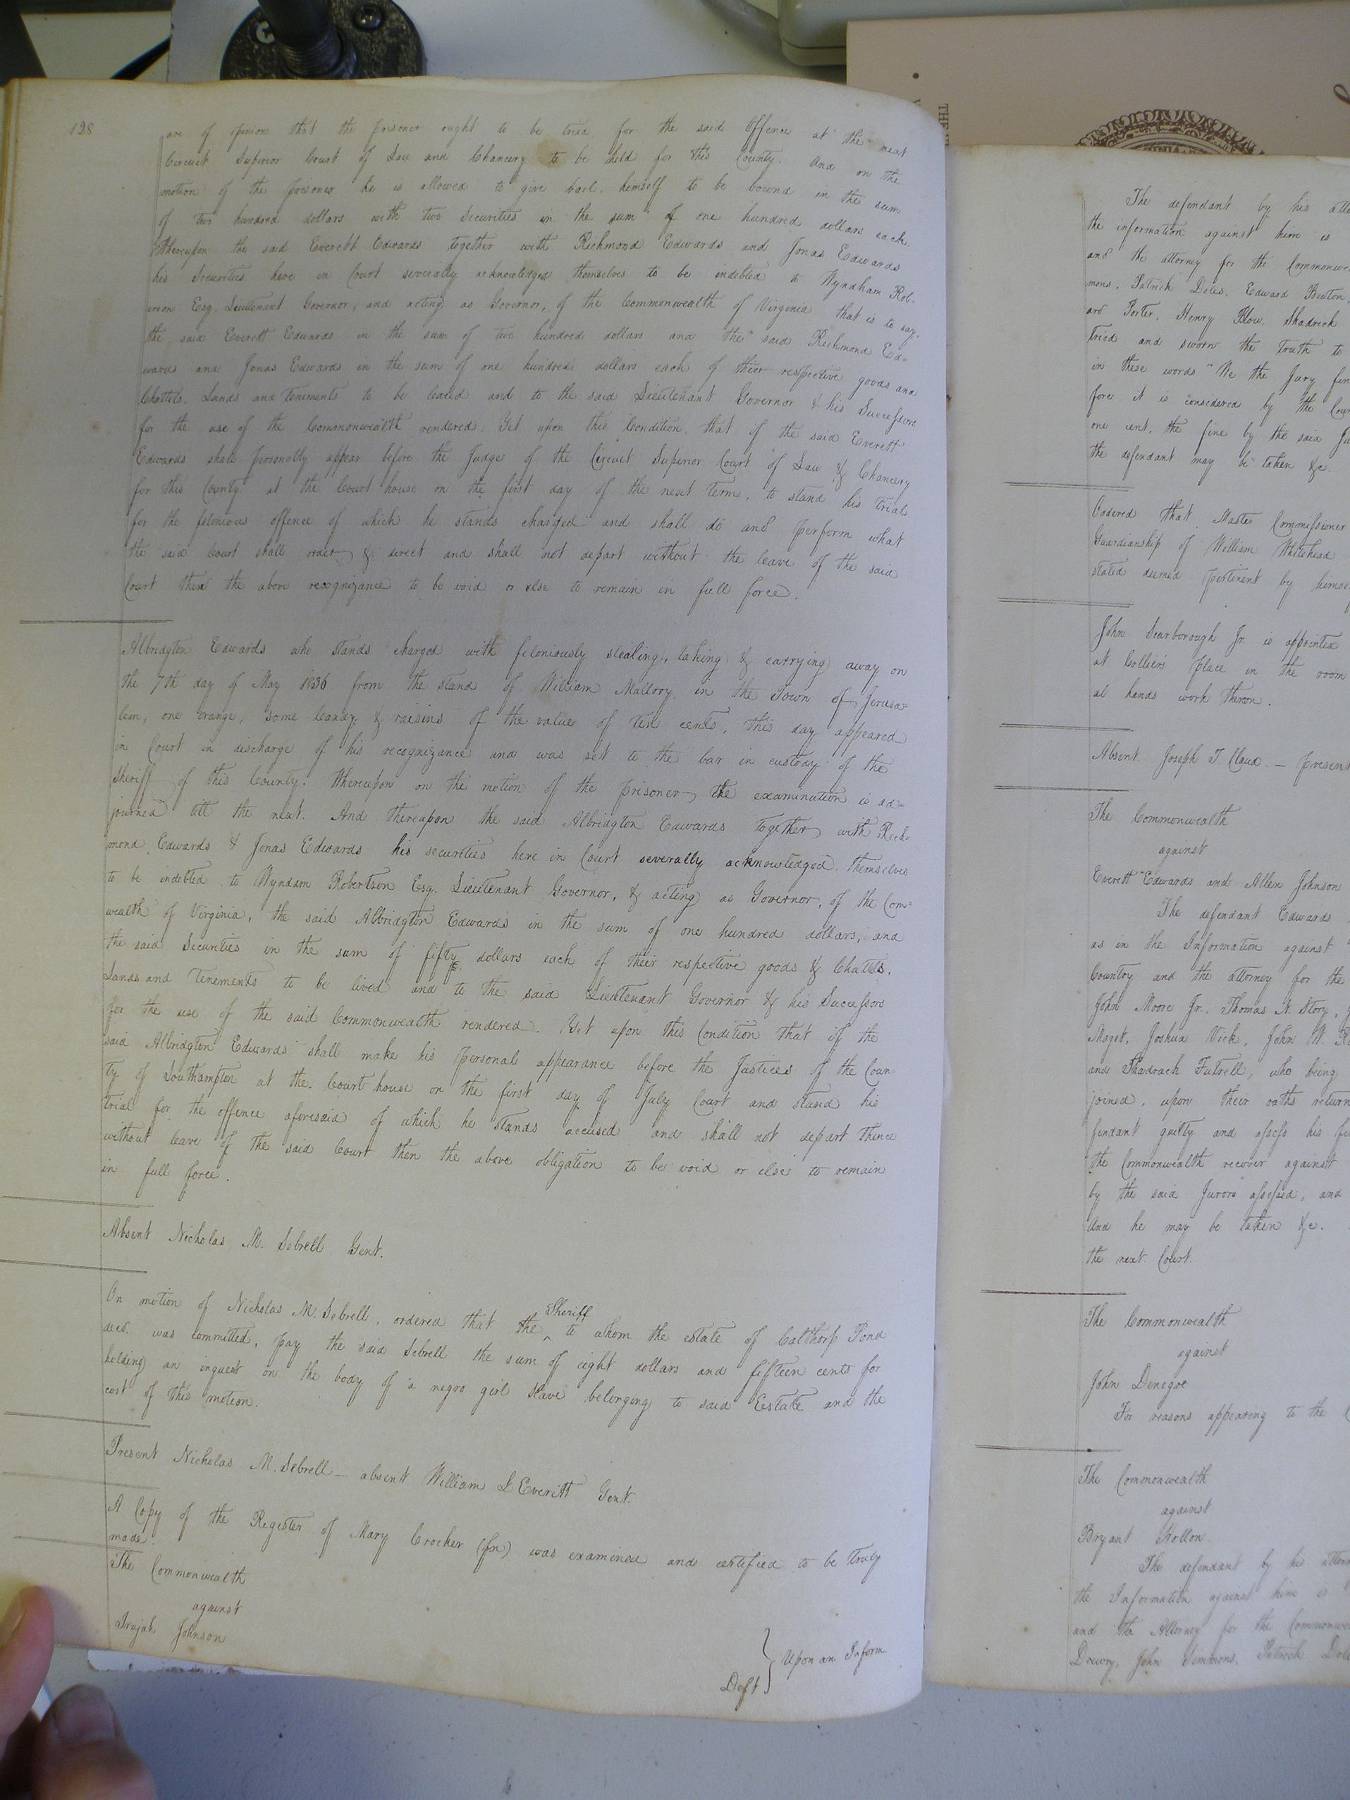 128
are of opinion that the prisoner ought to be tried for the said Offence at the next
Circuit Superior Court of Law and Chancery to be held for this County. And on the
motion of the prisoner he is allowed to give bail, himself to be bound in the sum
of two hundred dollars with two Securities in the sum of one hundred dollars each.
Whereupon the said Everett Edwards together with Richmond Edwards and Jonas Edwards
his Securities here in Court severally acknowledged themselves to be indebted to Wyndham Rob-
ertson Esq. Lieutenant Governor, and acting as Governor, of the Commonwealth of Virginia that is to say
the said Everett Edwards in the sum of two hundred dollars and the said Richmond Ed-
wards and Jonas Edwards in the sum of one hundred dollars each of their respective goods and
Chattels, Lands and tenements to be levied and to the said Lieutenant Governor & his Successors
for the use of the Commonwealth rendered. Yet upon this Condition that if the said Everett
Edwards shall personally appear before the Judge of the Circuit Superior Court of Law & Chancery
for this County at the Court house on the first day of the next Term, to stand his trial
for the felonious offence of which he stands charged and shall do and perform what
the said Court shall order & direct and shall not depart without the leave of the said
Court then the above recognizance to be void or else to remain in full force.
Albridgton Edwards who stands charged with feloniously stealing, taking & carrying away on
the 7th day of May 1836 from the stand of William Mallory in the Town of Jerusa-
lem, one orange, some candy & raisins of the value of ten cents, this day appeared
in Court in discharge of his recognizance and was set to the bar in custody of the
Sheriff of this County. Whereupon on the motion of the prisoner the examination is ad-
journed till the next. And thereupon the said Albridgton Edwards together with Rich-
mond Edwards & Jonas Edwards his securities here in Court severally acknowledged themselves
to be indebted to Wyndam Robertson Esq. Lieutenant Governor, & acting as Governor, of the Com-
wealth of Virginia, the said Albridgton Edwards in the sum of one hundred dollars, and
the said Securities in the sum of fifty dollars each of their respective goods & Chattels,
Lands and Tenements to be lived and to the said Lieutenant Governor & his Successors
for the use of the said Commonwealth rendered. Yet upon this Condition that if the
said Albridgton Edwards shall make his personal appearance before the Justices of the Coun
ty of Southampton at the Court house on the first day of July Court and stand his
trial for the offence aforesaid of which he stands accused and shall not depart thence
without leave of the said Court then the above obligation to be void or else to remain
in full force.
Absent Nicholas M. Sebrell Gent.
On motion of Nicholas M. Sebrell, ordered that the Sheriff to whom the estate of Calthorp Pond
dec'd. was committed, pay the said Sebrell the sum of eight dollars and fifteen cents for
holding an inquest on the body of a negro girl slave belonging to said Estate and the
cost of this motion.
Present Nicholas M. Sebrell – absent William L Everitt Gent.
A Copy of the Register of Mary Crocker (fn) was examined and certified to be truly
made.
The Commonwealth
against
Johnson
Deft } Upon an Inform
The defendant by his atto
the information against him is
and the attorney for the Commonwea
mons, Patrick Doles, Edward Beaton,
ard Porter, Henry Blow, Shadrick
Tried and sworn the truth to
in these words "We the Jury fin
fore it is considered by the Cour
one cent, the fine by the said Ju
the defendant may be taken &c.
Ordered that Master Commissioner
Guardianship of William Whitehead
stated deemed pertinent by himse
John Scarborough Jr is appointed
at Collier's place in the room
al hands work theron.
Absent Joseph T. Claud. – present
The Commonwealth
against
Everett Edwards and Allen Johnson
The defendant Edwards
as in the Information against
Country and the attorney for the
John Moore Jr. Thomas N. Story,
Maget, Joshua Vick, John W. R
and Shadrach Futrell, who being
joined, upon their oaths return
fendant guilty and assess his fi
the Commonwealth recover against
by the said Jurors assessed, and
And he may be taken &c.
the next Court.
The Commonwealth
against
John Denegoe
For reasons appearing to the C
The Commonwealth
against
Bryant
The defendant by his attorn
the Information against him is
and the Attorney for the Commonwe
Drewry, John Simmons, Patrick Dole